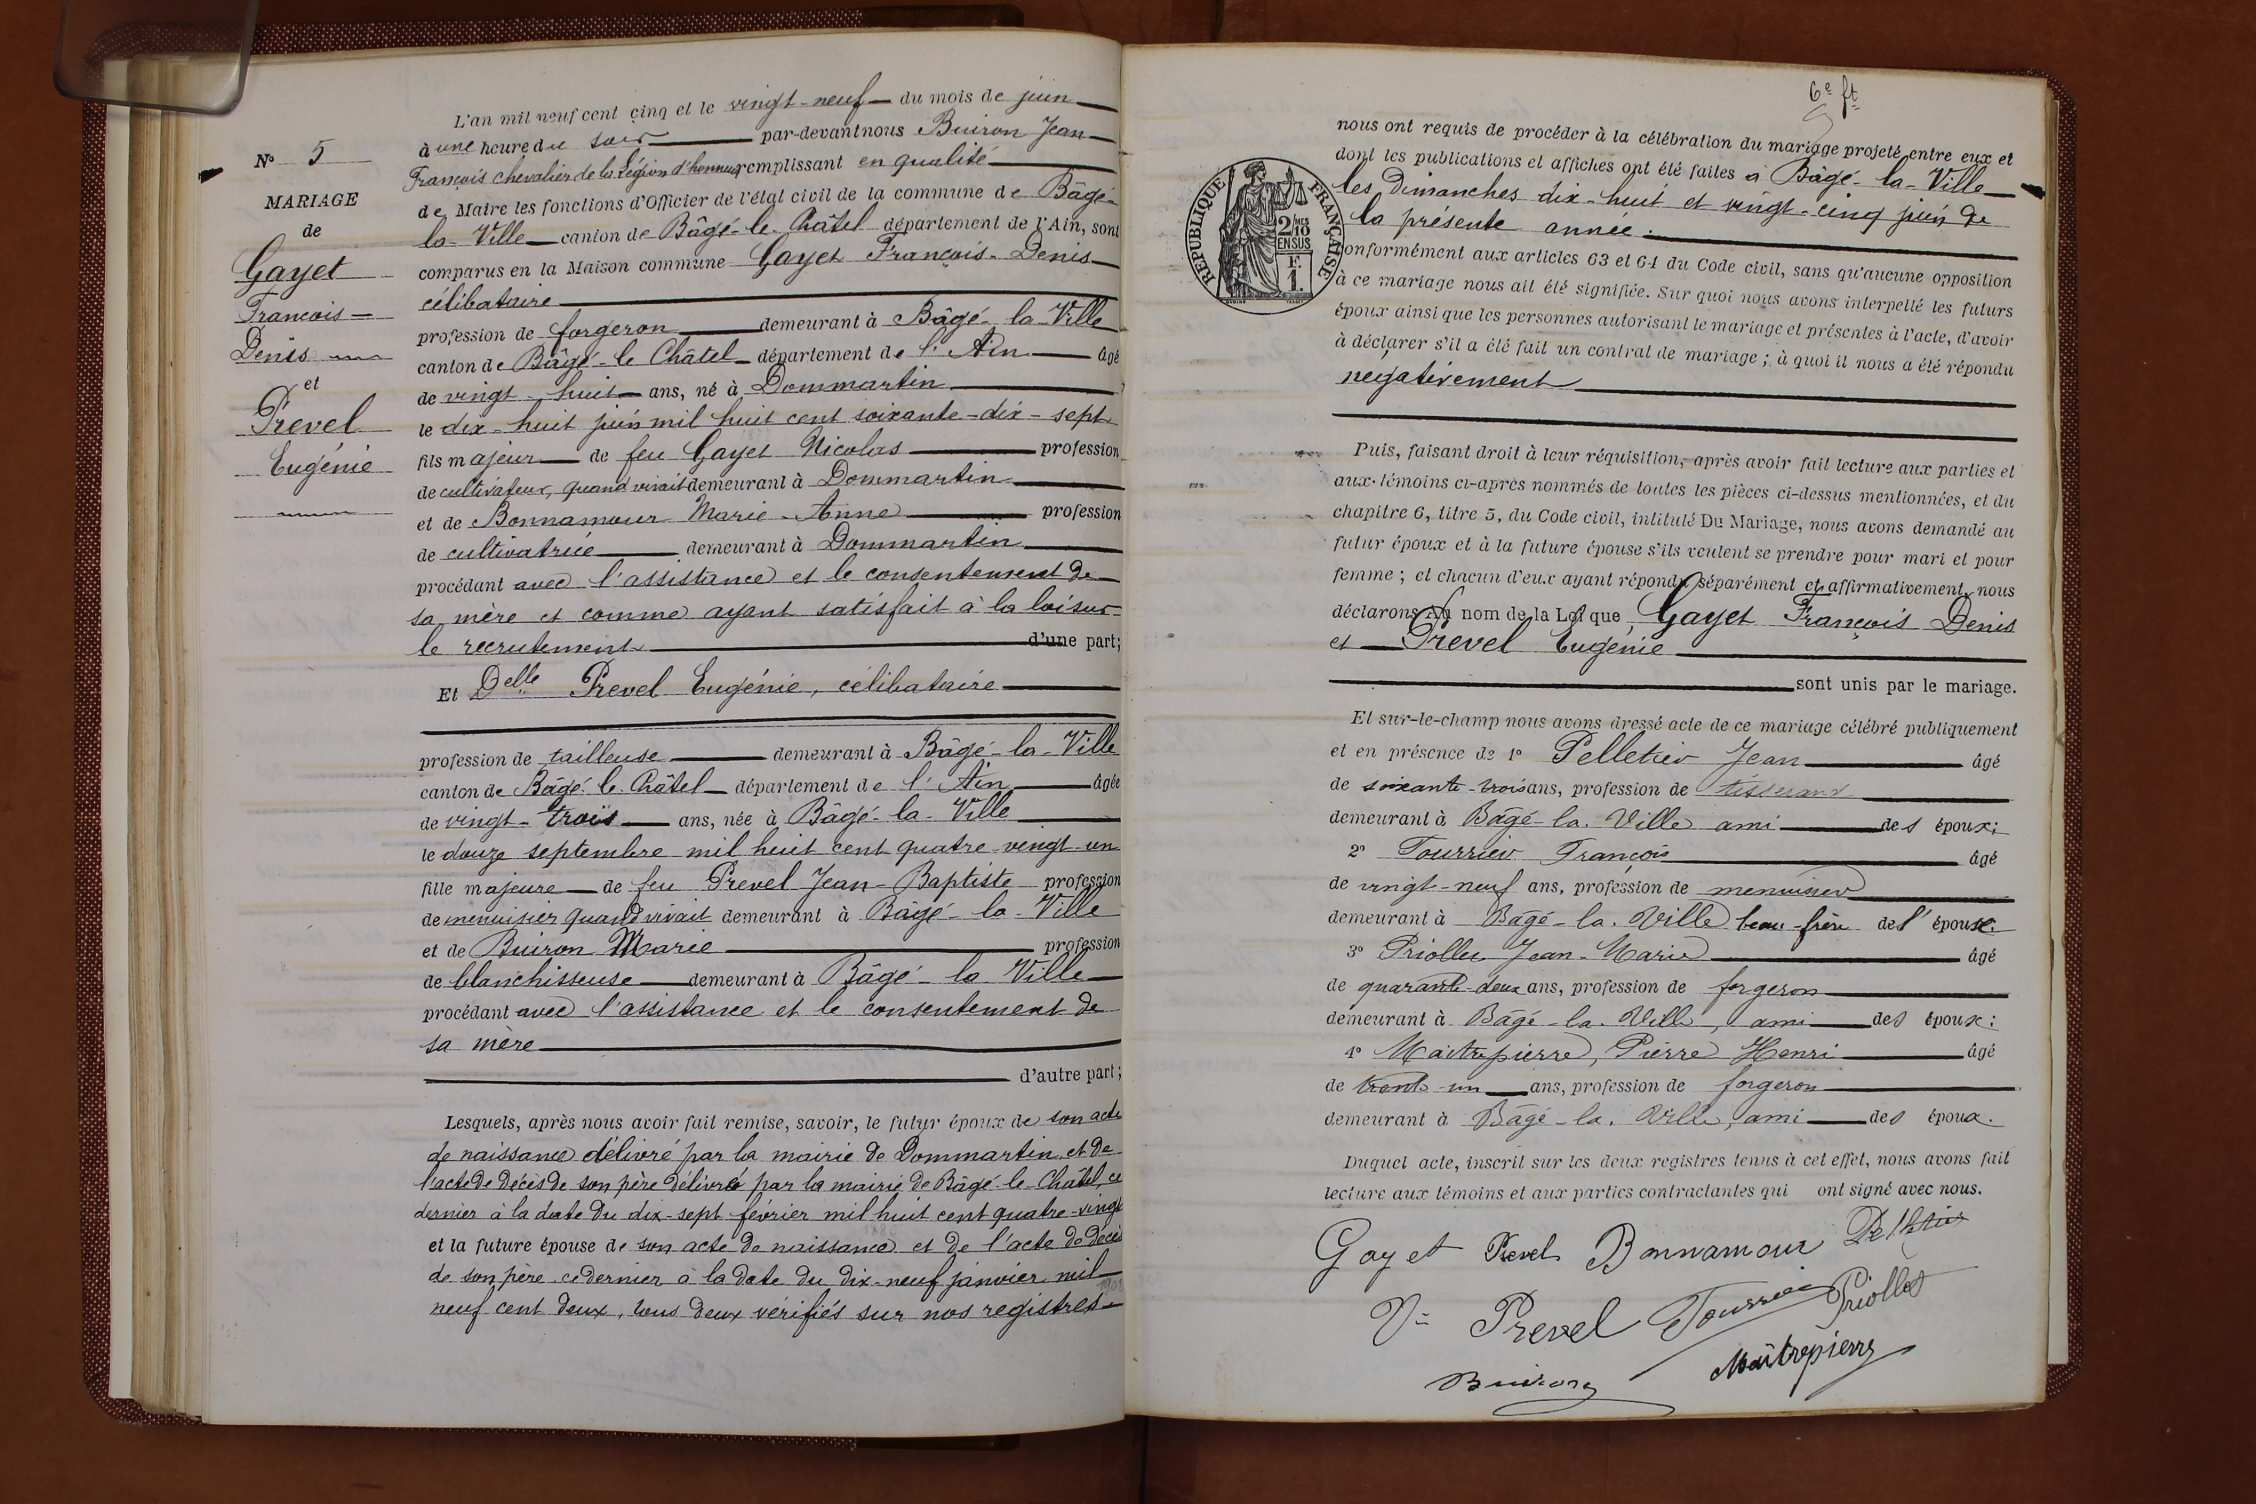 N° 5
MARIAGE
de
Gayet
Francois
Denis
et
Prevel
Eugénie
L'an mil neuf cent cinq et le vingt-neuf du mois de juin
à une heure du soir par-devant nous Buiron Jean
François chevalier de la Légion d'honneur remplissant en qualité
de Maire les fonctions d'Officier de l'état civil de la commune de Bâgé-
la-Ville canton de Bâgé-le-Châtel département de l'Ain, sont
comparus en la Maison commune Gayet François-Denis
célibataire
profession de forgeron demeurant à Bâgé-la-Ville
canton de Bâgé-le Châtel département de l'Ain âgé
de vingt-huit ans, né à Dommartin
le dix-huit juin mil huit cent soixante-dix-sept
fils majeur de feu Gayet Nicolas profession
de cultivateur, quand vivait demeurant à Dommartin
et de Bonnamour Marie-Anne profession
de cultivatrice demeurant à Dommartin
procédant avec l'assistance et le consentement de
sa mère et comme ayant satisfait à la loi sur
le recrutement d'une part;
Et Delle Prevel Eugénie, célibataire
profession de tailleuse demeurant à Bâgé-la-Ville
canton de Bâgé-le-Châtel département de l'Ain âgée
de vingt-trois ans, née à Bâgé-la-Ville
le douze septembre mil huit cent quatre-vingt-un
fille majeure de feu Prevel Jean-Baptiste profession
de menuisier quand vivait demeurant à Bâgé-la-Ville
et de Buiron Marie profession
de blanchisseuse demeurant à Bâgé-la-Ville
procédant avec l'assistance et le consentement de
sa mère
d'autre part;
Lesquels, après nous avoir fait remise, savoir, le futur époux de son acte
de naissance délivré par la mairie de Dommartin et de
l'acte de décès de son père délivré par la mairie de Bâgé-le-Châtel, ce
dernier à la date du dix-sept février mil huit cent quatre-vingt
et la future épouse de son acte de naissance et de l'acte de décès
de son père ce dernier à la date du dix-neuf janvier mil
neuf cent deux, tous deux vérifiés sur nos registres
6e ft
nous ont requis de procéder à la célébration du mariage projeté entre eux et
dont les publications et affiches ont été faites à Bâgé-la-Ville
les Dimanches dix-huit et vingt-cinq juin de
la présente année.
RÉPUBLIQUE FRANÇAISE
2/10 EN SUS
F. 1.
conformément aux articles 63 et 64 du Code civil, sans qu'aucune opposition
à ce mariage nous ait été signifiée. Sur quoi nous avons interpellé les futurs
époux ainsi que les personnes autorisant le mariage et présentes à l'acte, d'avoir
à déclarer s'il a été fait un contrat de mariage; à quoi il nous a été répondu
négativement
Puis, faisant droit à leur réquisition, après avoir fait lecture aux parties et
aux témoins ci-après nommés de toutes les pièces ci-dessus mentionnées, et du
chapitre 6, titre 5, du Code civil, intitulé Du Mariage, nous avons demandé au
futur époux et à la future épouse s'ils veulent se prendre pour mari et pour
femme; et chacun d'eux ayant répondu séparément et affirmativement, nous
déclarons Au nom de la Loi que Gayet François Denis
et Prevel Eugénie
sont unis par le mariage.
Et sur-le-champ nous avons dressé acte de ce mariage célébré publiquement
et en présence de 1° Pelletier Jean âgé
de soixante-trois ans, profession de tisserand
demeurant à Bâgé-la-Ville ami des époux;
2° Tourrier François âgé
de vingt-neuf ans, profession de menuisier
demeurant à Bâgé-la-Ville beau-frère de l'épouse.
3° Priollet Jean-Marie âgé
de quarante-deux ans, profession de forgeron
demeurant à Bâgé-la-Ville, ami des époux;
4° Maitrepierre, Pierre Henri âgé
de trente-un ans, profession de forgeron
demeurant à Bâgé-la-Ville, ami des époux.
Duquel acte, inscrit sur les deux registres tenus à cet effet, nous avons fait
lecture aux témoins et aux parties contractantes qui ont signé avec nous.
Gayet Prevel Bonnamour Pelletier
Ve Prevel Tourrier Priollet
Buiron Maitrepierre